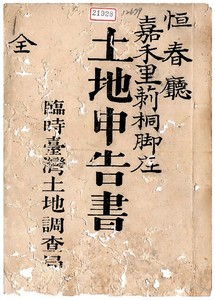 恒春廳
嘉禾里莿桐脚庄
土地申告書
臨時臺灣土地調查局
全
21928